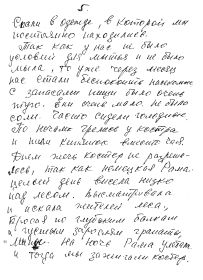 5.
Спали в одежде, в которой мы
постоянно находились.
Так как у нас не было
условий для мытья и не было
мыла, то уже через месяц
нас стали беспокоить насекомые
С запасами пищи было очень
туго. Ели очень мало. Не было
соли. Часто сидели голодные.
По ночам грелись у костра
и пили кипяток вместо чая.
Днём жечь костер не разреша-
лось, так как немецкая Рама
целый день висела низко
над лесом. Высматривала
и искала жителей леса,
бросая по глубоким балкам
и густым зарослям гранаты,
мины. На ночь Рама улетает
и тогда мы зажигаем костер,